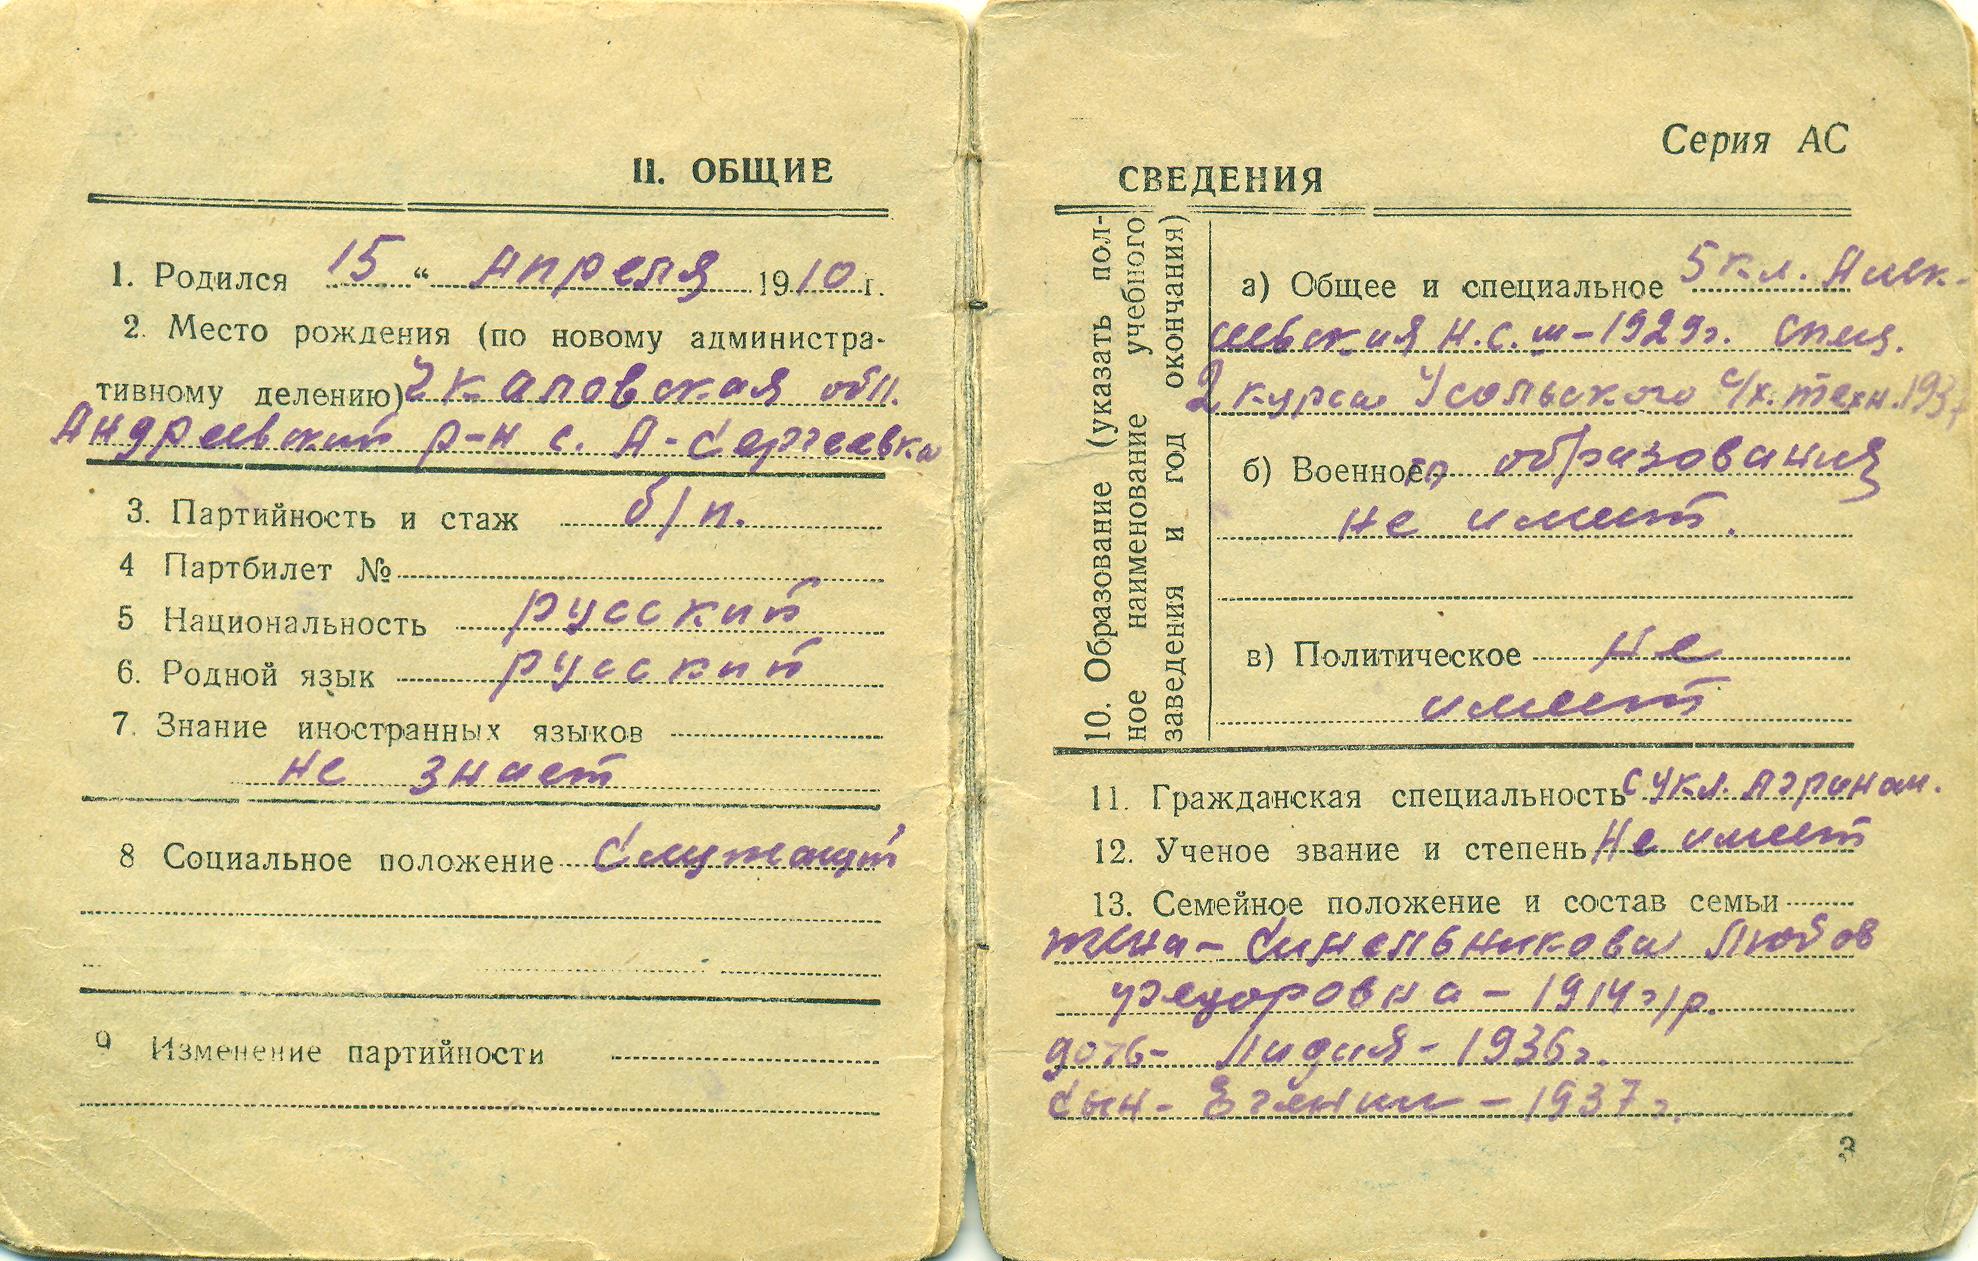 II. ОБЩИЕ
1. Родился 15 " Апреля 1910 г.
2. Место рождения (по новому администра-
тивному делению) Чкаловская обл.
Андреевский р-н с. А-Сергеевка
3. Партийность и стаж б/п.
4 Партбилет №
5 Национальность русский
6. Родной язык русский
7. Знание иностранных языков
не знает
8 Социальное положение Служащий
9 Изменение партийности
Серия АС
СВЕДЕНИЯ
10. Образование (указать пол-
ное наименование учебного
заведения и год окончания)
а) Общее и специальное 5 кл. Алек-
сеевская Н.С.Ш - 1929 г. спец.
2 курса Усольского с/х. техн. 193
б) Военное образования
не имеет.
в) Политическое не
имеет
11. Гражданская специальность Агроном.
12. Ученое звание и степень Не имеет
13. Семейное положение и состав семьи
жена - Синельникова Любов
Федоровна - 1914 г/р.
дочь - Лидия - 1936 г.
Сын - - 1937 г.
3